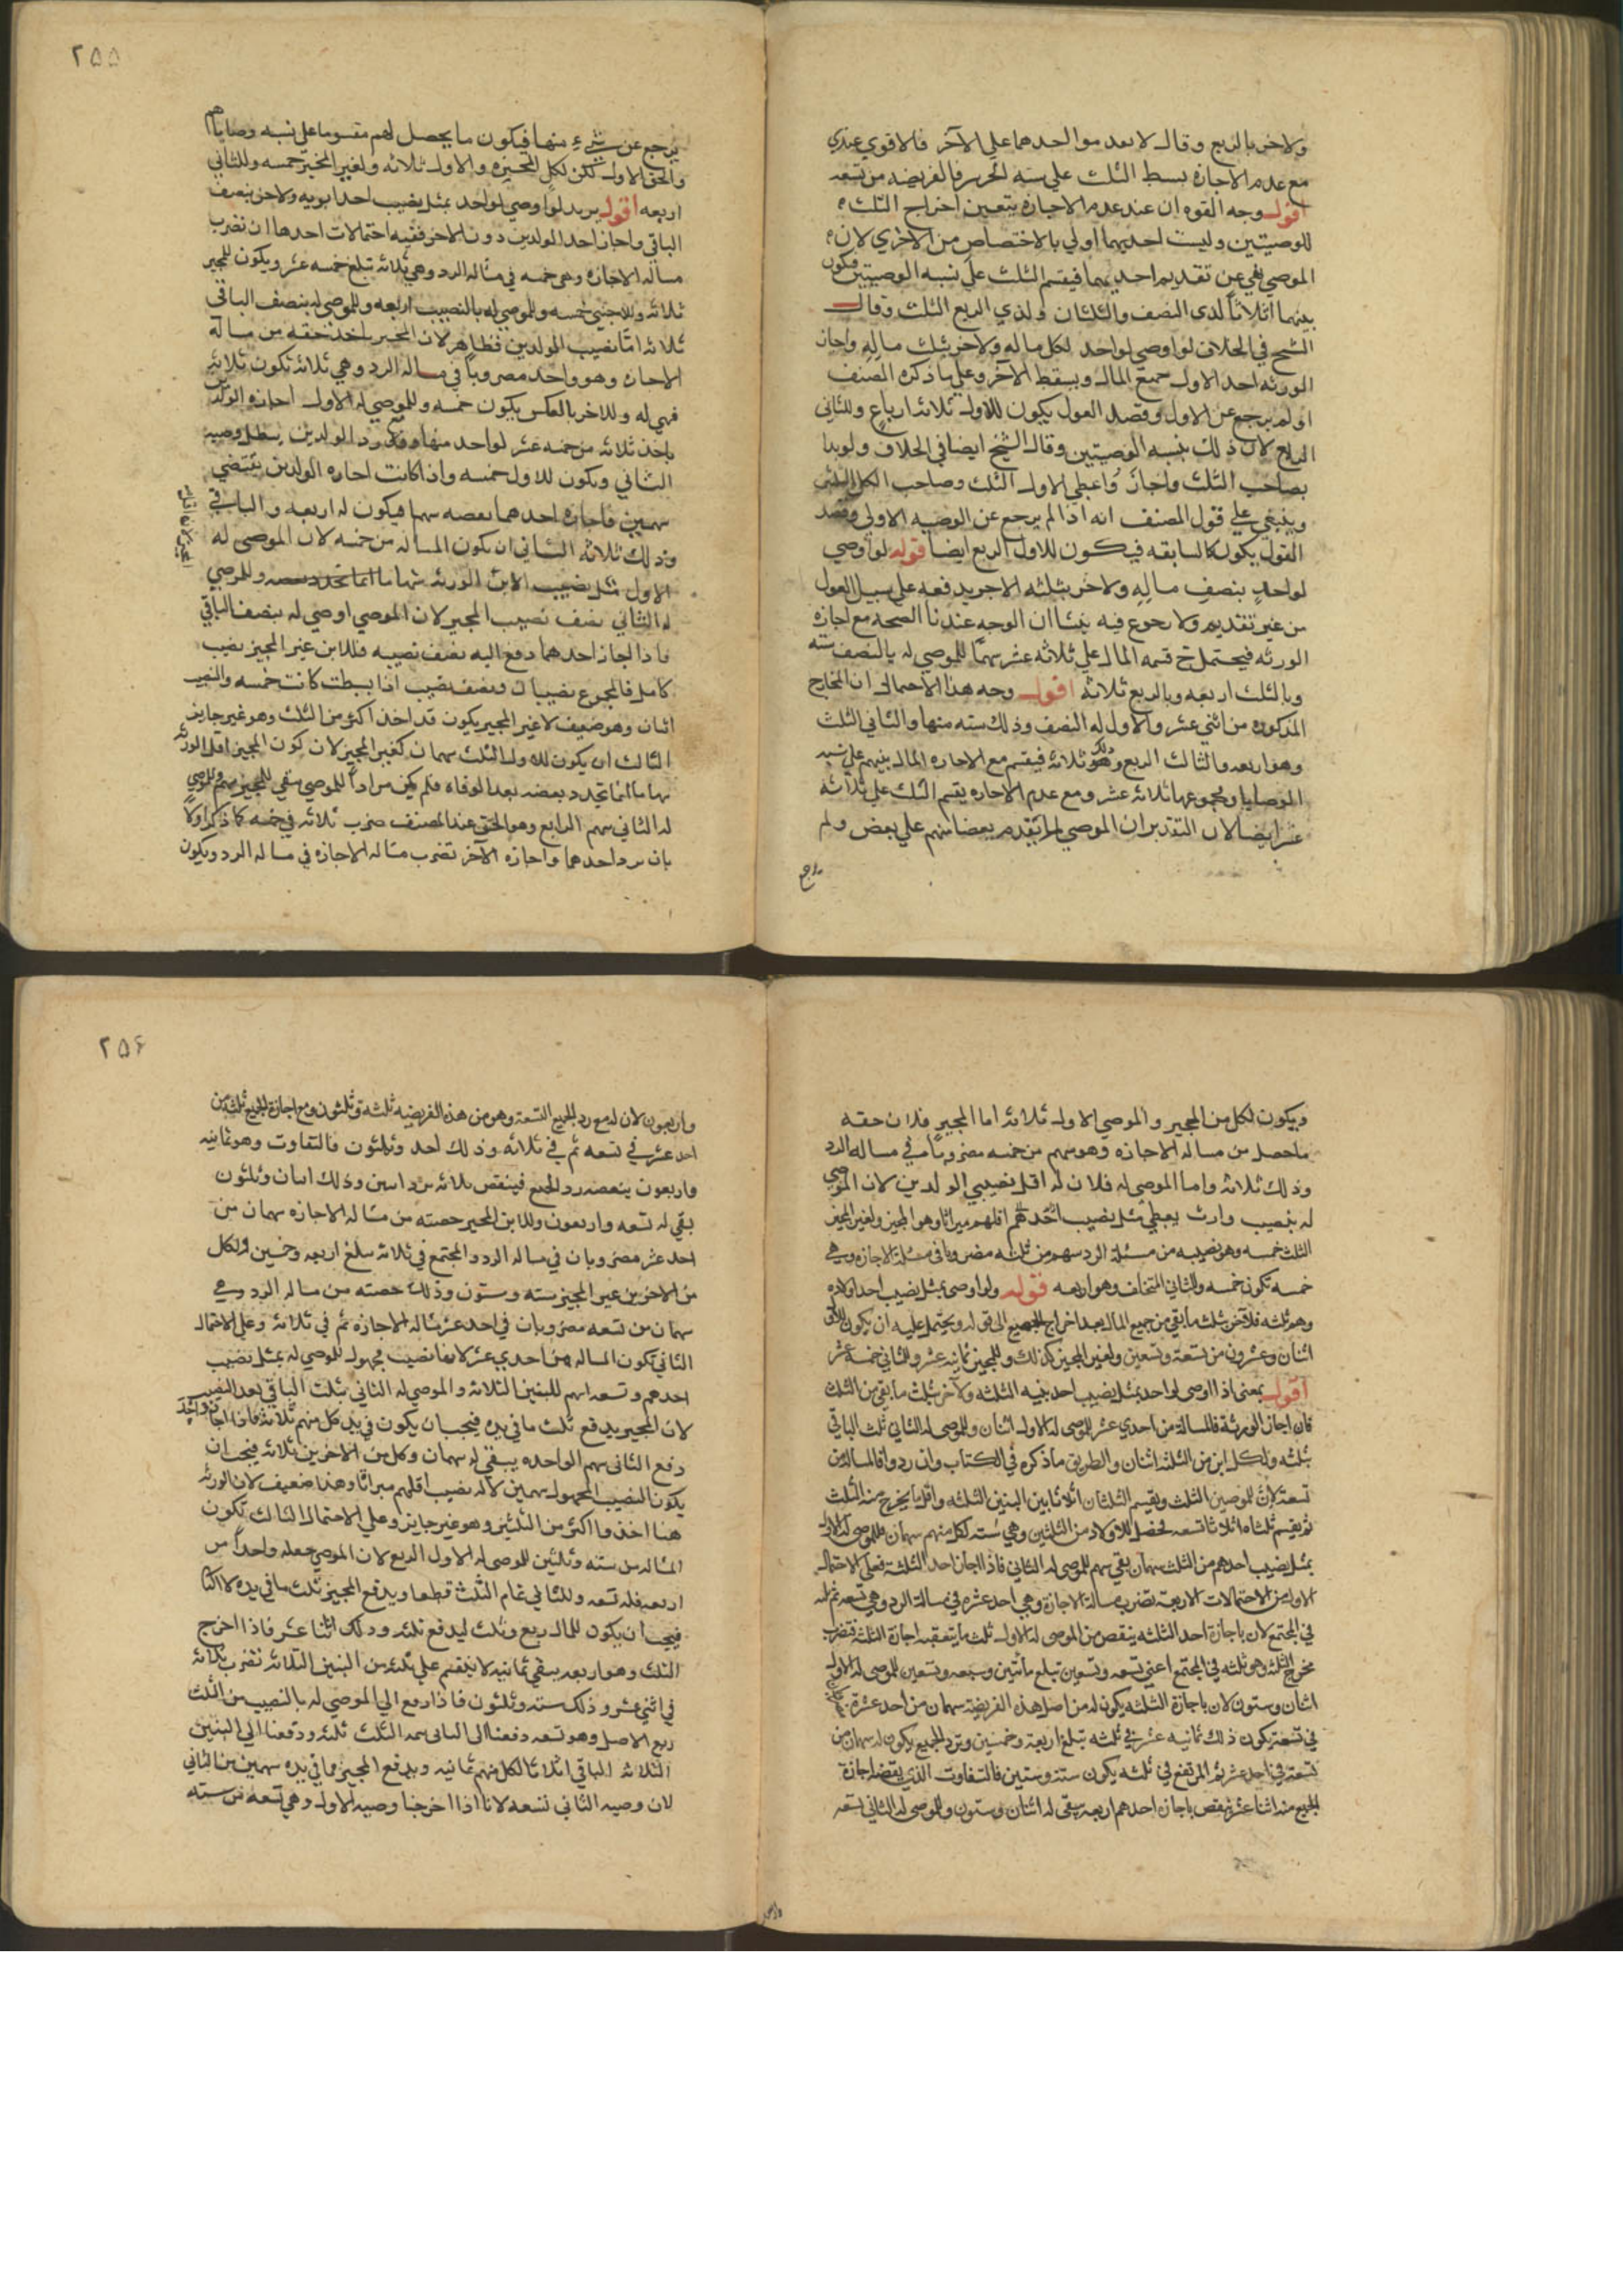 ولاخر بالربع وقال لا تقدموا احدهما على الآخر فالاقوي عندي
مع عدم الاجازة بسط الثلث علي تسعة الفريضه من تسعه
اقول وجه القوه ان عند عدم الاجازه يتعين اخراج الثلث
للوصيتين وليست احديهما اولي بالاختصاص من الاخري لان
الموصي نهي عن تقديم احديهما فيقسم الثلث علي نسبه الوصيتين فيكون
بينهما اثلاثا لذي النصف والثلثان ولذي الربع الثلث وقال
الشيخ في الخلاف لو اوصي لواحد بكل ماله ولاخر بثلث ماله واجاز
الورثه اخذ الاول جميع المال وسقط الآخر وعلي ما ذكره المصنف
لو لم يرجع عن الاول وقصد العول يكون للاول ثلاثه ارباع وللثاني
الربع لان ذلك بنسبه الوصيتين وقال الشيخ ايضا في الخلاف ولو بدا
بصاحب الثلث واجاز واعطي الاول الثلث وصاحب الكل الثلثين
وينبغي علي قول المصنف انه اذا لم يرجع عن الوصيه الاولي وقصد
العول يكون كالسابقه فيكون للاول الربع ايضا قوله لو اوصي
لواحد بنصف ماله ولاخر بثلثه ولاخر بربعه علي سبيل العول
من غير تقديم ولا رجوع فيه بينا ان الوجه عندنا الصحه مع اجازه
الورثه فيحتمل ح قسمه المال علي ثلاثه عشر سهما للموصي له بالنصف سته
وبالثلث اربعه وبالربع ثلاثه اقول وجه هذا الاحتمال ان المخارج
المذكوره من اثني عشر والاول له النصف وذلك سته منها والثاني الثلث
وهو اربعه والثالث الربع وهو ثلاثه فيقسم مع الاجازه المال بينهم علي نسبه
الوصايا ومجموعها ثلاثه عشر ومع عدم الاجازه يقسم الثلث علي ثلاثه
عشر ايضا لان التقدير ان الموصي لم يقدم بعضا منهم علي بعض ولم
يرجع
٢٥٥
يرجع عن شيء منها فيكون ما يحصل لهم مقسوما علي نسبه وصاياهم
والحق الاول لكن لكل المجيزه والاول ثلاثه ولغير المجيز خمسه وللثاني
اربعه اقول يريد لو اوصي لواحد بمثل نصيب احد ابويه ولاخر بنصف
الباقي واجاز احد الولدين دون الاخر ففيه احتمالات احدها ان نضرب
مساله الاجازه وهي خمسه في مساله الرد وهي ثلاثه تبلغ خمسه عشر ويكون للمجيز
ثلاثه وللاجنبي خمسه وللموصي له بالنصيب اربعه وللموصي له بنصف الباقي
ثلاثه امّا نصيب الولدين فظاهر لان المجيز ياخذ حقه من مسالة
الاجازه وهو واحد مضروبا في مساله الرد وهي ثلاثه تكون ثلاثه
فهي له وللاخر بالعكس يكون خمسه وللموصي له الاول اجازه الولدين
ياخذ ثلاثه من خمسه عشر لواحد منها ورد الولدين يبطل وصيه
الثاني ويكون للاول خمسه واذا كانت اجازه الولدين تقتضي
سهمين فاجازه احدهما بعضه سهما فيكون له اربعه والباقي
وذلك ثلاثه الثاني ان يكون المساله من خمسه لان الموصي له
الاول مثل نصيب الابن الورثه سهاما انما تجدد بعضه وللموصي
له الثاني نصف نصيب المجيز لان الموصي اوصي له بنصف الباقي
فاذا اجاز احدهما دفع اليه نصف نصيبه فللابن غير المجيز نصيب
كامل فالمجموع نصيبان ونصف نصيب اذا بسطت كانت خمسه والنصيب
اثنان وهو ضعيف لا غير المجيز يكون قد اخذ اكثر من الثلث وهو غير جايز
الثالث ان يكون للاول الثلث سهمان كغير المجيز لان كون المجيز اقل الورثه
سهاما انما تجدد بعضه بعد الوفاه فلم يكن مرادا للموصي يبقي للمجيز سهم وللموصي
له الثاني سهم الرابع وهو الحق عند المصنف ضرب ثلاثه في خمسه كما ذكر اولا
بان يرد احدهما واجازه الآخر تضرب مساله الاجازه في مساله الرد ويكون
المجيز لان اقل
ويكون لكل من المجيز والموصي الاول ثلاثه اما المجيز فلان حقه
ماحصل من مساله الاجازه وهو سهم من خمسه مضروبا في مساله الرد
وذلك ثلاثه واما الموصي له فلان له اقل نصيبي الولدين لان الموصي
له بنصيب وارث يعطي مثل نصيب احدهم اقلهم ميراثا وهو المجيز ولغير المجيز
الثلث خمسه وهو نصيبه من مسئلة الرد سهم من ثلثه مضروبا في مسئلة الاجازه وهي
خمسه تكون خمسه وللثاني المتخلف وهو اربعه قوله ولو اوصى بمثل نصيب احد اولاده
وهم ثلثه فلآخر بثلث ما بقي من جميع المال بعد اخراج النصيب الى قوله ويحتمل عليه ان يكون للاول
اثنان وعشرون من تسعة وتسعين ولغير المجيز كذلك وللمجيز ثمانيه عشر وللثاني خمسة عشر
اقول بمعنى اذا اوصى لواحد بمثل نصيب احد بنيه الثلثه ولآخر بثلث ما بقي من الثلث
فان اجاز الورثة فالمسالة من احدي عشر للموصى له الاول اثنان وللموصى له الثاني ثلث الباقي
ثلثه ولكل ابن من الثلثة اثنان والطريق ما ذكره في الكتاب وان ردوا فالمسالة من
تسعة لان للموصيين الثلث ويقسم الثلثان اثلاثا بين البنين الثلثه واقل ما يخرج منه الثلث
ثم يقسم ثلثاه اثلاثا تسعه فحصل للاولاد من الثلثين وهي سته لكل منهم سهمان للموصى له الاول
بمثل نصيب احدهم من الثلث سهمان بقي سهم للموصى له الثاني فاذا اجاز احد الثلثة فعلى الاحتمال
الاول من الاحتمالات الاربعة تضرب مسالة الاجازة وهي احد عشر في مسالة الرد وهي تسعه ثم ثلثه
في المجتمع لان باجازة احد الثلثه ينقص من الموصى له الاول ثلث ما يتعقبه اجازة الثلثة فتضرب
مخرج الثلثه وهو ثلثه في المجتمع اعني تسعه وتسعين تبلغ مأتين وسبعه وتسعين للموصى له الاول
اثنان وستون لان باجازة الثلثه يكون له من اصل هذه الفريضه سهمان من احد عشر
في تسعة يكون ذلك ثمانيه عشر في ثلثه تبلغ اربعة وخمسين وبرد الجميع يكون له سهمان من
تسعة في احد عشر ثم المرتفع في ثلثه يكون ستة وستين فالتفاوت الذي يقتضيه اجازة
الجميع منه اثنا عشر فينقص باجازة احدهم اربعه يبقى له اثنان وستون وللموصى له الثاني تسعه
٢٥۶
واربعون لان له مع رد الجميع التسعة وهو من هذه الفريضه ثلثه وثلثون ومع اجازة الجميع ثلثه من
احد عشر في تسعه ثم في ثلاثه وذلك احد وثمانون فالتفاوت وهو ثمانيه
واربعون ينقصه رد الجميع فينقص ثلاثه برد اثنين وذلك اثنان وثلثون
بقي له تسعه واربعون وللابن المجيز حصته من مساله الاجازه سهمان من
احد عشر مضروبان في مساله الرد والمجتمع في ثلاثه يبلغ اربعه وخمسين ولكل
من الاخرين غير المجيز سته وستون وذلك حصته من مساله الرد وهي
سهمان من تسعه مضروبان في احد عشر مساله الاجازه ثم في ثلاثه وعلي الاحتمال
الثاني تكون المساله من احدي عشر لانها نصيب مجهول للموصي له بمثل نصيب
احدهم وتسعه اسهم للبنين الثلاثة والموصي له الثاني بثلث الباقي بعد النصيب
لان المجيز يدفع ثلث ما في يده فيجب ان يكون في يد كل منهم ثلاثة فاذا اجاز واحد
دفع الثاني سهم الواحده يبقي له سهمان وكل من الاخرين ثلاثه فيجب ان
يكون النصيب المجهول سهمين لانه نصيب اقلهم ميراثا وهذا ضعيف لان الورثه
هنا اخذوا اكثر من الثلثين وهو غير جايز وعلي الاحتمال الثالث تكون
المساله من سته وثلثين للموصي له الاول الربع لان الموصي جعله واحدا من
اربعه فله تسعه وللثاني تمام الثلث قطعا ويدفع المجيز ثلث ما في يده
فيجب ان يكون للمال ربع وثلث ليدفع ثلثه وذلك اثنا عشر فاذا اخرج
الثلث وهو اربعه يبقي ثمانيه لا ينقسم علي ثلثه من البنين الثلاثة نضرب ثلاثة
في اثني عشر وذلك سته وثلثون فاذا دفع الي الموصي له بالنصيب من الثلث
ربع الاصل وهو تسعه دفعنا الي الثاني تتمه الثلث ثلثه ودفعنا الي البنين
الثلاثه الباقي اثلاثا لكل منهم ثمانيه ويدفع المجيز مما في يده سهمين من الثاني
لان وصيه الثاني تسعه لانا اذا اخرجنا وصيه الاول وهي تسعه من سته